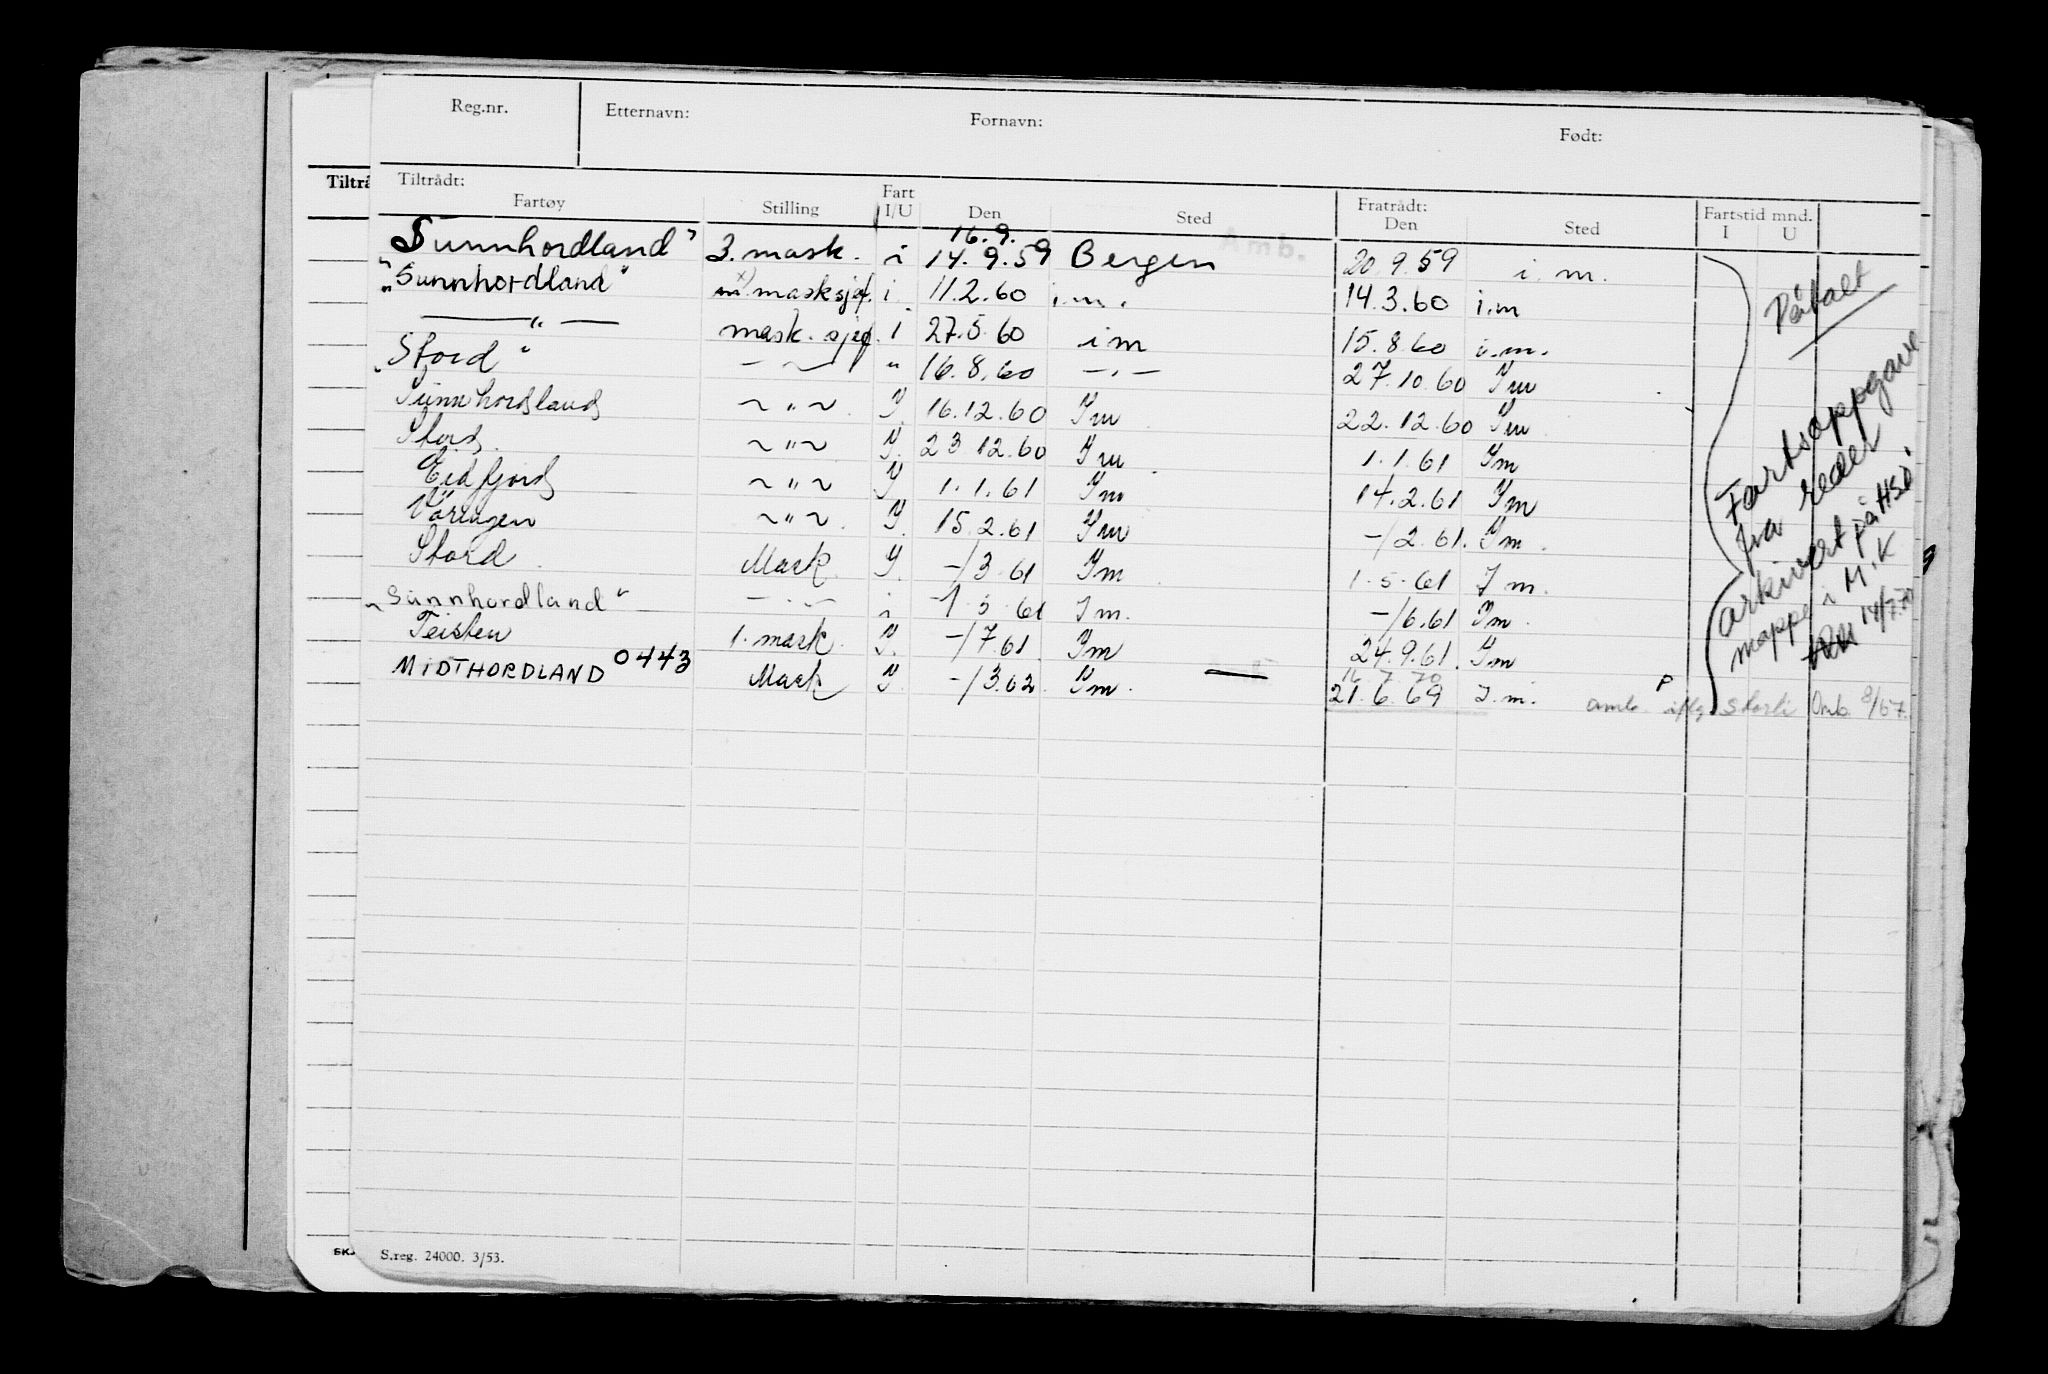 Reg.nr. Etternavn: Fornavn: Født:
Tiltrå Tiltrådt: Fratrådt: Fartstid mnd.
Fartøy Stilling Fart I/U Den Sted Den Sted I U
16.9. Amb.
Sunnhordland" 3. mask. i 14.9.59 Bergen 20.9.59 i.m.
"Sunnhordland" x) mask sjef. i. 11.2.60 i.m. 14.3.60 i.m
— " — mask. sjef. i 27.5.60 i m 15.8.60 i.m.
"Stord" — " — " 16.8.60 — " — 27.10.60 I m
Sunnhordland ~ " ~ I. 16.12.60 I m 22.12.60 I m
Stord. ~ " ~ I. 23.12.60 I m 1.1.61 I m
Eidfjord ~ " ~ I 1.1.61 I m 14.2.61 I m
Vöringen ~ " ~ I. 15.2.61 I m -/2.61. I m.
Stord Mask. I. -/3.61 I m 1.5.61 I m.
"Sunnhordland" — " — i -/5.61 I m. -/6.61 I m.
Teisten 1. mask. I. -/7.61 I m 24.9.61. I m
MIDTHORDLAND 0443 Mask I. -/3.62. I m. — 16.7.70
21.6.69 I.m. P amb. iflg. Storli Omb. 8/67.
Påtalt
Fartsoppgave
fra reder
arkivert på HSD
mappe i M.K
14/7.70
SK.
S.reg. 24000. 3/53.